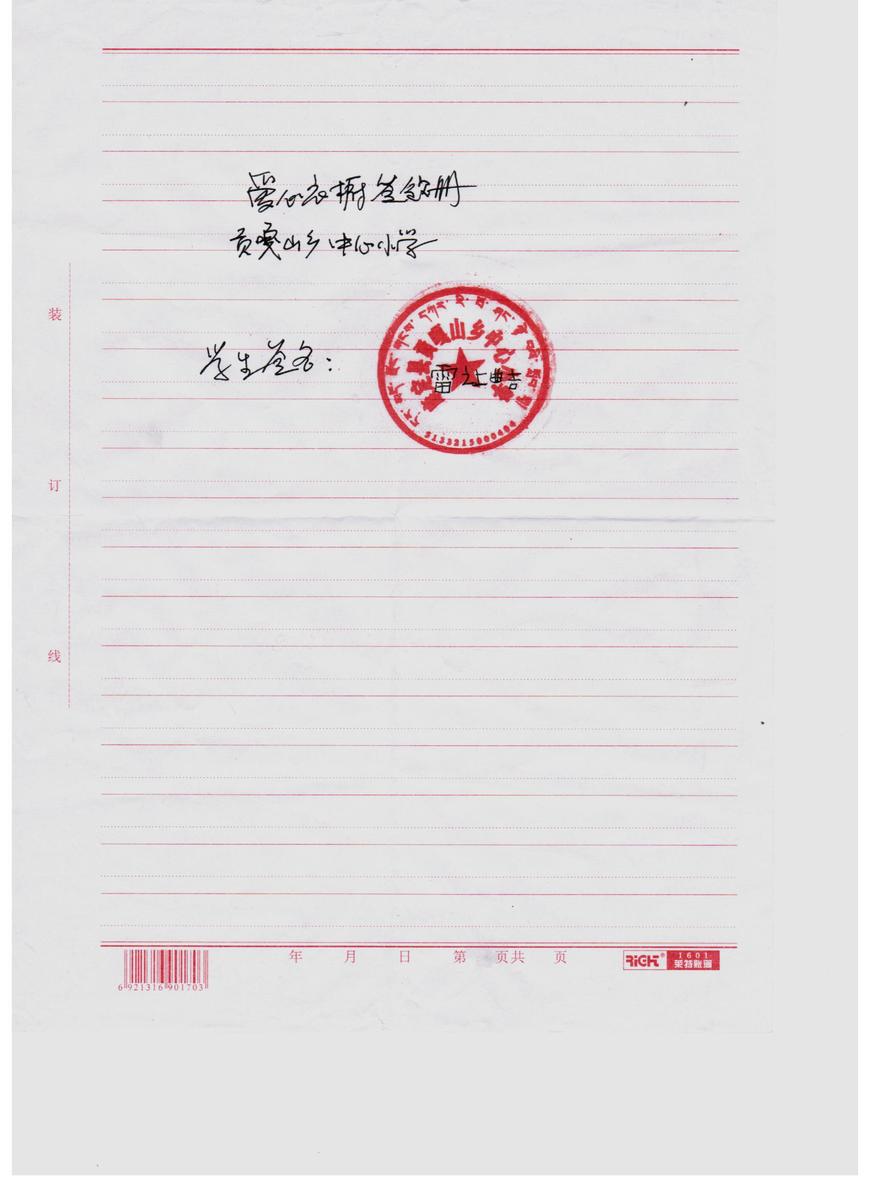 爱心衣橱签名册
贡嘎山乡中心小学
学生签名：
康定县贡嘎山乡中心小学
5133215000404
装
订
线
年 月 日 第 页共 页
6 921316 901703
RiCH®
1601
莱特账簿